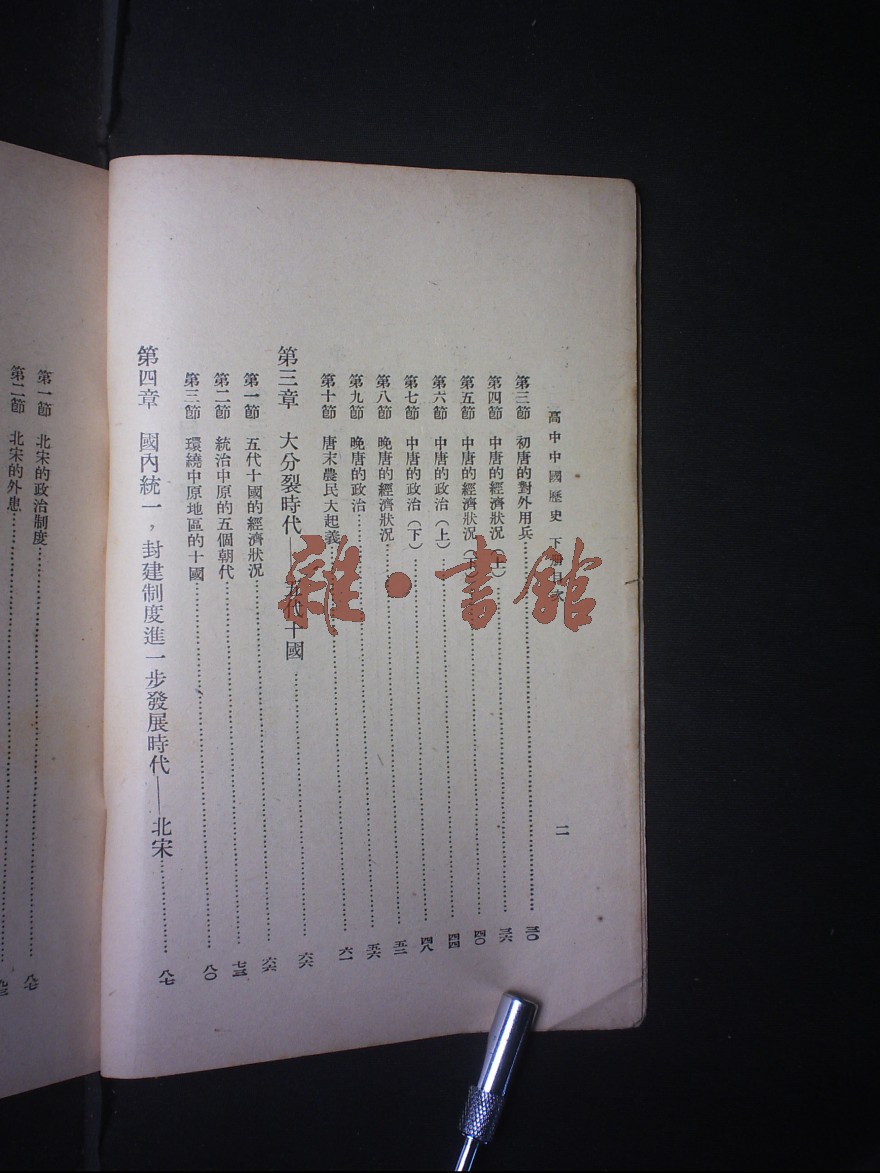 高中中國歷史 下册目次
二
第三節 初唐的對外用兵 三〇
第四節 中唐的經濟狀況(上) 三六
第五節 中唐的經濟狀況(下) 四〇
第六節 中唐的政治(上) 四四
第七節 中唐的政治(下) 四八
第八節 晚唐的經濟狀況 五二
第九節 晚唐的政治 五六
第十節 唐末農民大起義 六一
第三章 大分裂時代——五代十國 六六
第一節 五代十國的經濟狀況 六六
第二節 統治中原的五個朝代 七三
第三節 環繞中原地區的十國 八〇
第四章 國內統一,封建制度進一步發展時代——北宋 八七
第一節 北宋的政治制度 八七
第二節 北宋的外患
雜·書館